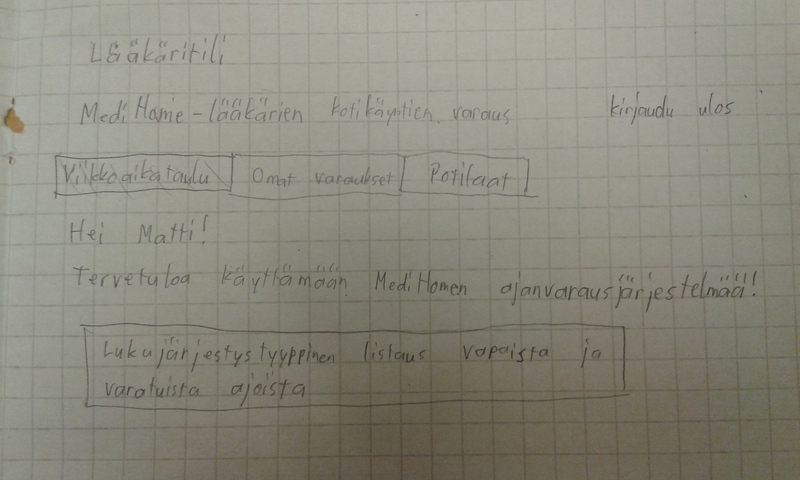 Lääkäritili
MediHome-lääkärien kotikäyntien varaus kirjaudu ulos
Viikkoaikataulu Omat varaukset Potilaat
Hei Matti!
Tervetuloa käyttämään MediHomen ajanvarausjärjestelmää!
Lukujärjestystyyppinen listaus vapaista ja
varatuista ajoista